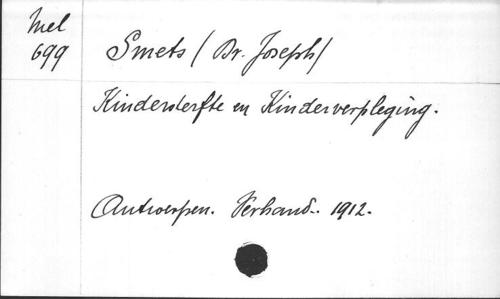 Mel
699
Smets (Dr. Joseph)
Kindersterfte en Kinderverpleging.
Antwerpen. Verhand.. 1912.